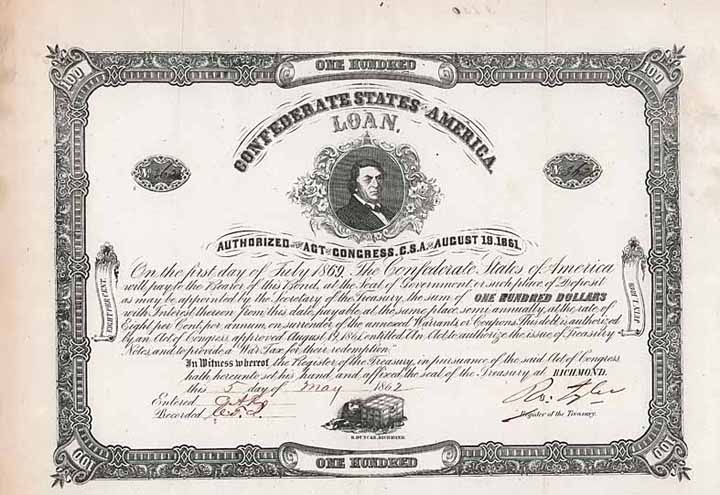 ONE HUNDRED
100 100
CONFEDERATE STATES OF AMERICA
LOAN.
AUTHORIZED BY ACT OF CONGRESS, C.S.A. OF AUGUST 19, 1861.
On the first day of July 1869, The Confederate States of America
will pay to the Bearer of this Bond, at the Seat of Government, or such place of Deposit
as may be appointed by the Secretary of the Treasury, the sum of ONE HUNDRED DOLLARS
with Interest thereon from this date, payable at the same place semi-annually, at the rate of
Eight per Cent. per annum, on surrender of the annexed Warrants or Coupons. This debt is authorized
by an Act of Congress approved August 19, 1861, entitled An Act to authorize the issue of Treasury
Notes, and to provide a War Tax for their redemption.
EIGHT PER CENT.
JULY 1, 1869
In Witness whereof the Register of the Treasury, in pursuance of the said Act of Congress
hath hereunto set his hand and affixed the seal of the Treasury at RICHMOND.
this 5 day of May 1862
Entered
Recorded
Ro: Tyler
Register of the Treasury.
B. DUNCAN, RICHMOND.
100 100
ONE HUNDRED